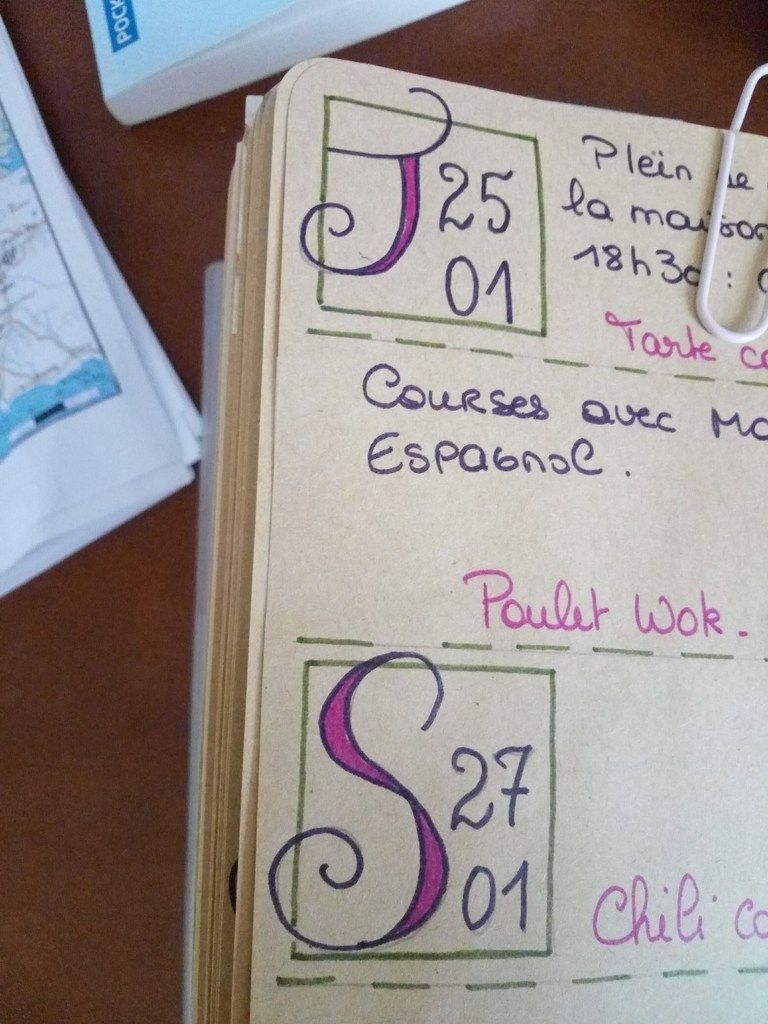 POCK
J 25
01
Pleïn
la maison
18h30 :
Tarte
Courses avec
Espagnol.
Poulet Wok.
S 27
01
Chili